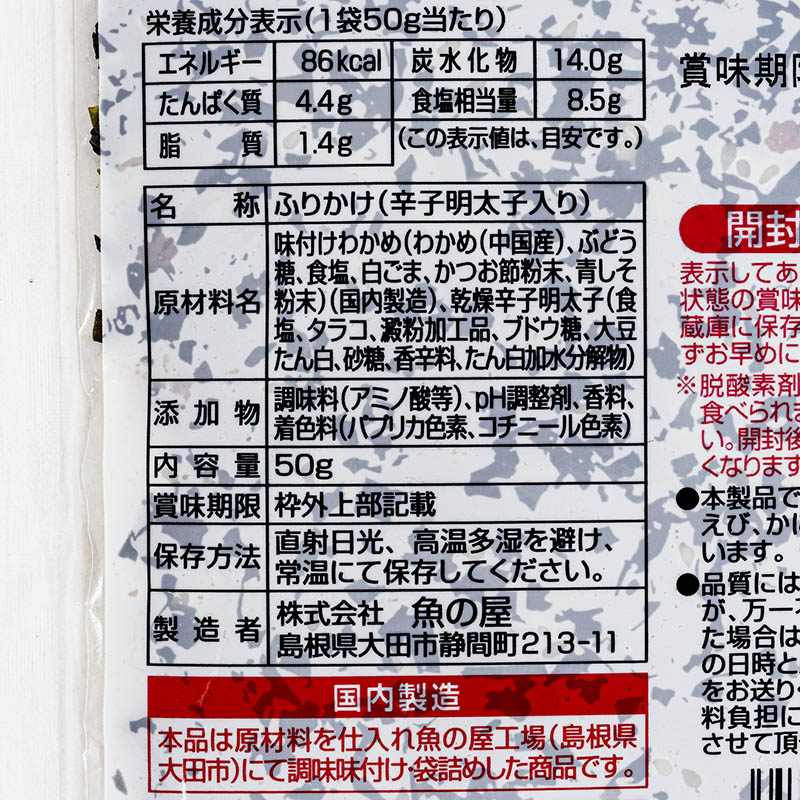 栄養成分表示(1袋50g当たり)
エネルギー 86kcal 炭水化物 14.0g
たんぱく質 4.4g 食塩相当量 8.5g
脂質 1.4g (この表示値は、目安です。)
名称 ふりかけ(辛子明太子入り)
原材料名 味付けわかめ(わかめ(中国産)、ぶどう
糖、食塩、白ごま、かつお節粉末、青しそ
粉末)(国内製造)、乾燥辛子明太子(食
塩、タラコ、澱粉加工品、ブドウ糖、大豆
たん白、砂糖、香辛料、たん白加水分解物)
添加物 調味料(アミノ酸等)、pH調整剤、香料、
着色料(パプリカ色素、コチニール色素)
内容量 50g
賞味期限 枠外上部記載
保存方法 直射日光、高温多湿を避け、
常温にて保存してください。
製造者 株式会社 魚の屋
島根県大田市静間町213-11
国内製造
本品は原材料を仕入れ魚の屋工場(島根県
大田市)にて調味味付け・袋詰めした商品です。
賞味期限
開封
表示してあ
状態の賞味
蔵庫に保存
ずお早めに
※脱酸素剤
食べられま
い。開封後
くなります
●本製品で
えび、かに
います。
●品質には
が、万一
た場合は
の日時と
をお送り
料負担に
させて頂